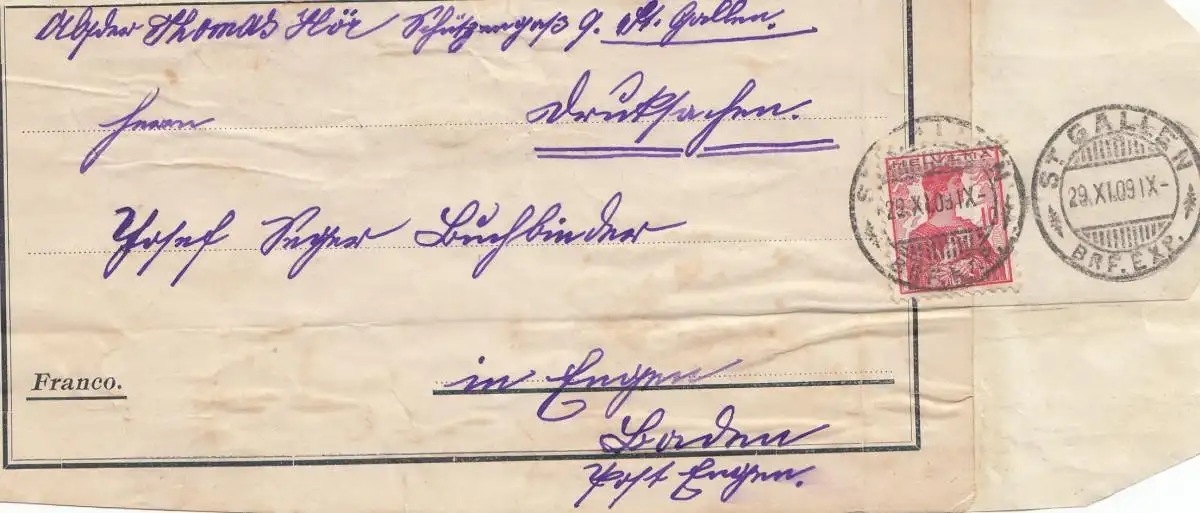 Absder Thomas Hör Schützengaß 9. St. Gallen.
Herrn
Drucksachen.
Josef Seger Buchbinder
Franco.
in Engen
Baden
Post Engen.
HELVETIA
10
ST. GALLEN
29.XI.09 IX-
BRF. EXP.
ST. GALLEN
29.XI.09 IX-
BRF. EXP.